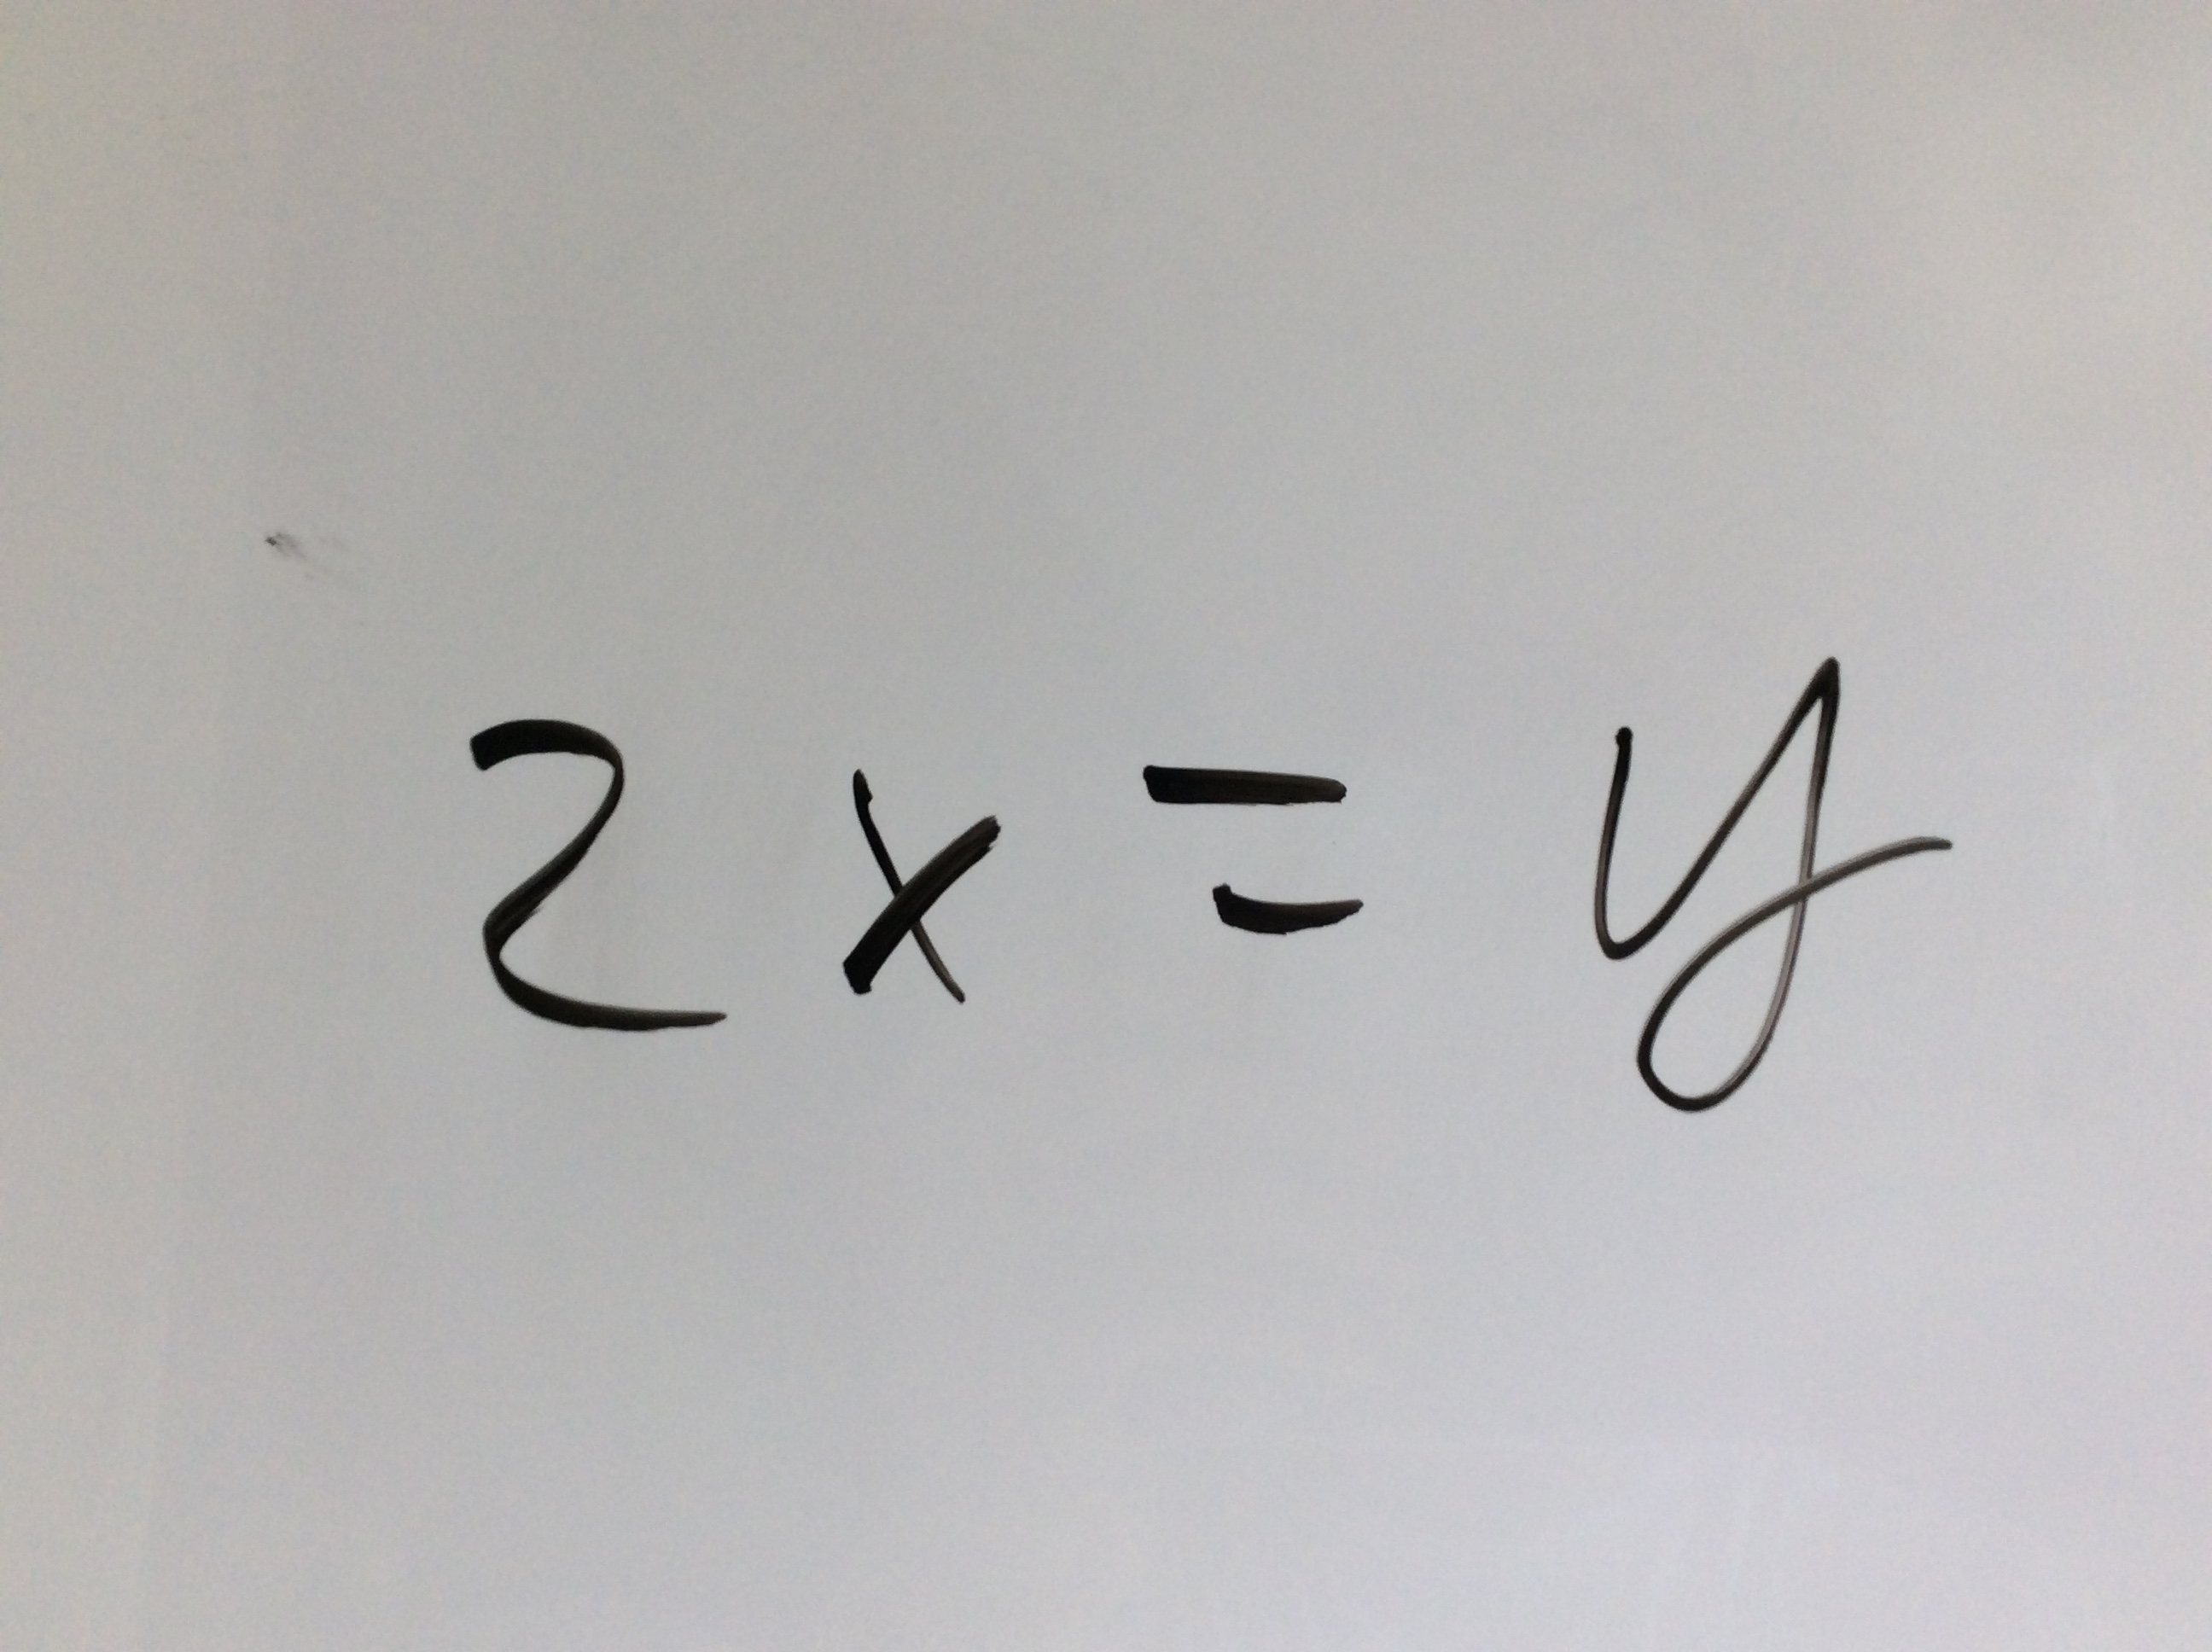 2x = y